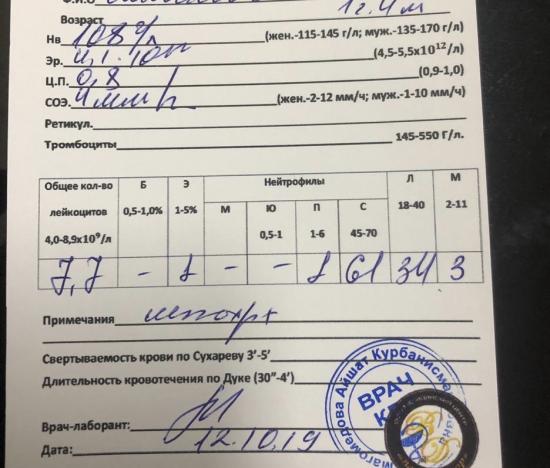 Ф.И.О
Возраст 1г. 4м
Нв 108 г/л (жен.-115-145 г/л; муж.-135-170 г/л)
Эр. 4,1·10 (4,5-5,5х10¹²/л)
Ц.П. 0,8 (0,9-1,0)
СОЭ. 4мм/ч (жен.-2-12 мм/ч; муж.-1-10 мм/ч)
Ретикул.
Тромбоциты 145-550 Г/л.
Общее кол-во лейкоцитов 4,0-8,9х10⁹/л
Б 0,5-1,0%
Э 1-5%
Нейтрофилы
М
Ю 0,5-1
П 1-6
С 45-70
Л 18-40
М 2-11
7,7 - 1 - - 1 61 34 3
Примечания
Свертываемость крови по Сухареву 3’-5’
Длительность кровотечения по Дуке (30”-4’)
Врач-лаборант:
Дата: 12.10.19
Айшат
ВРАЧ